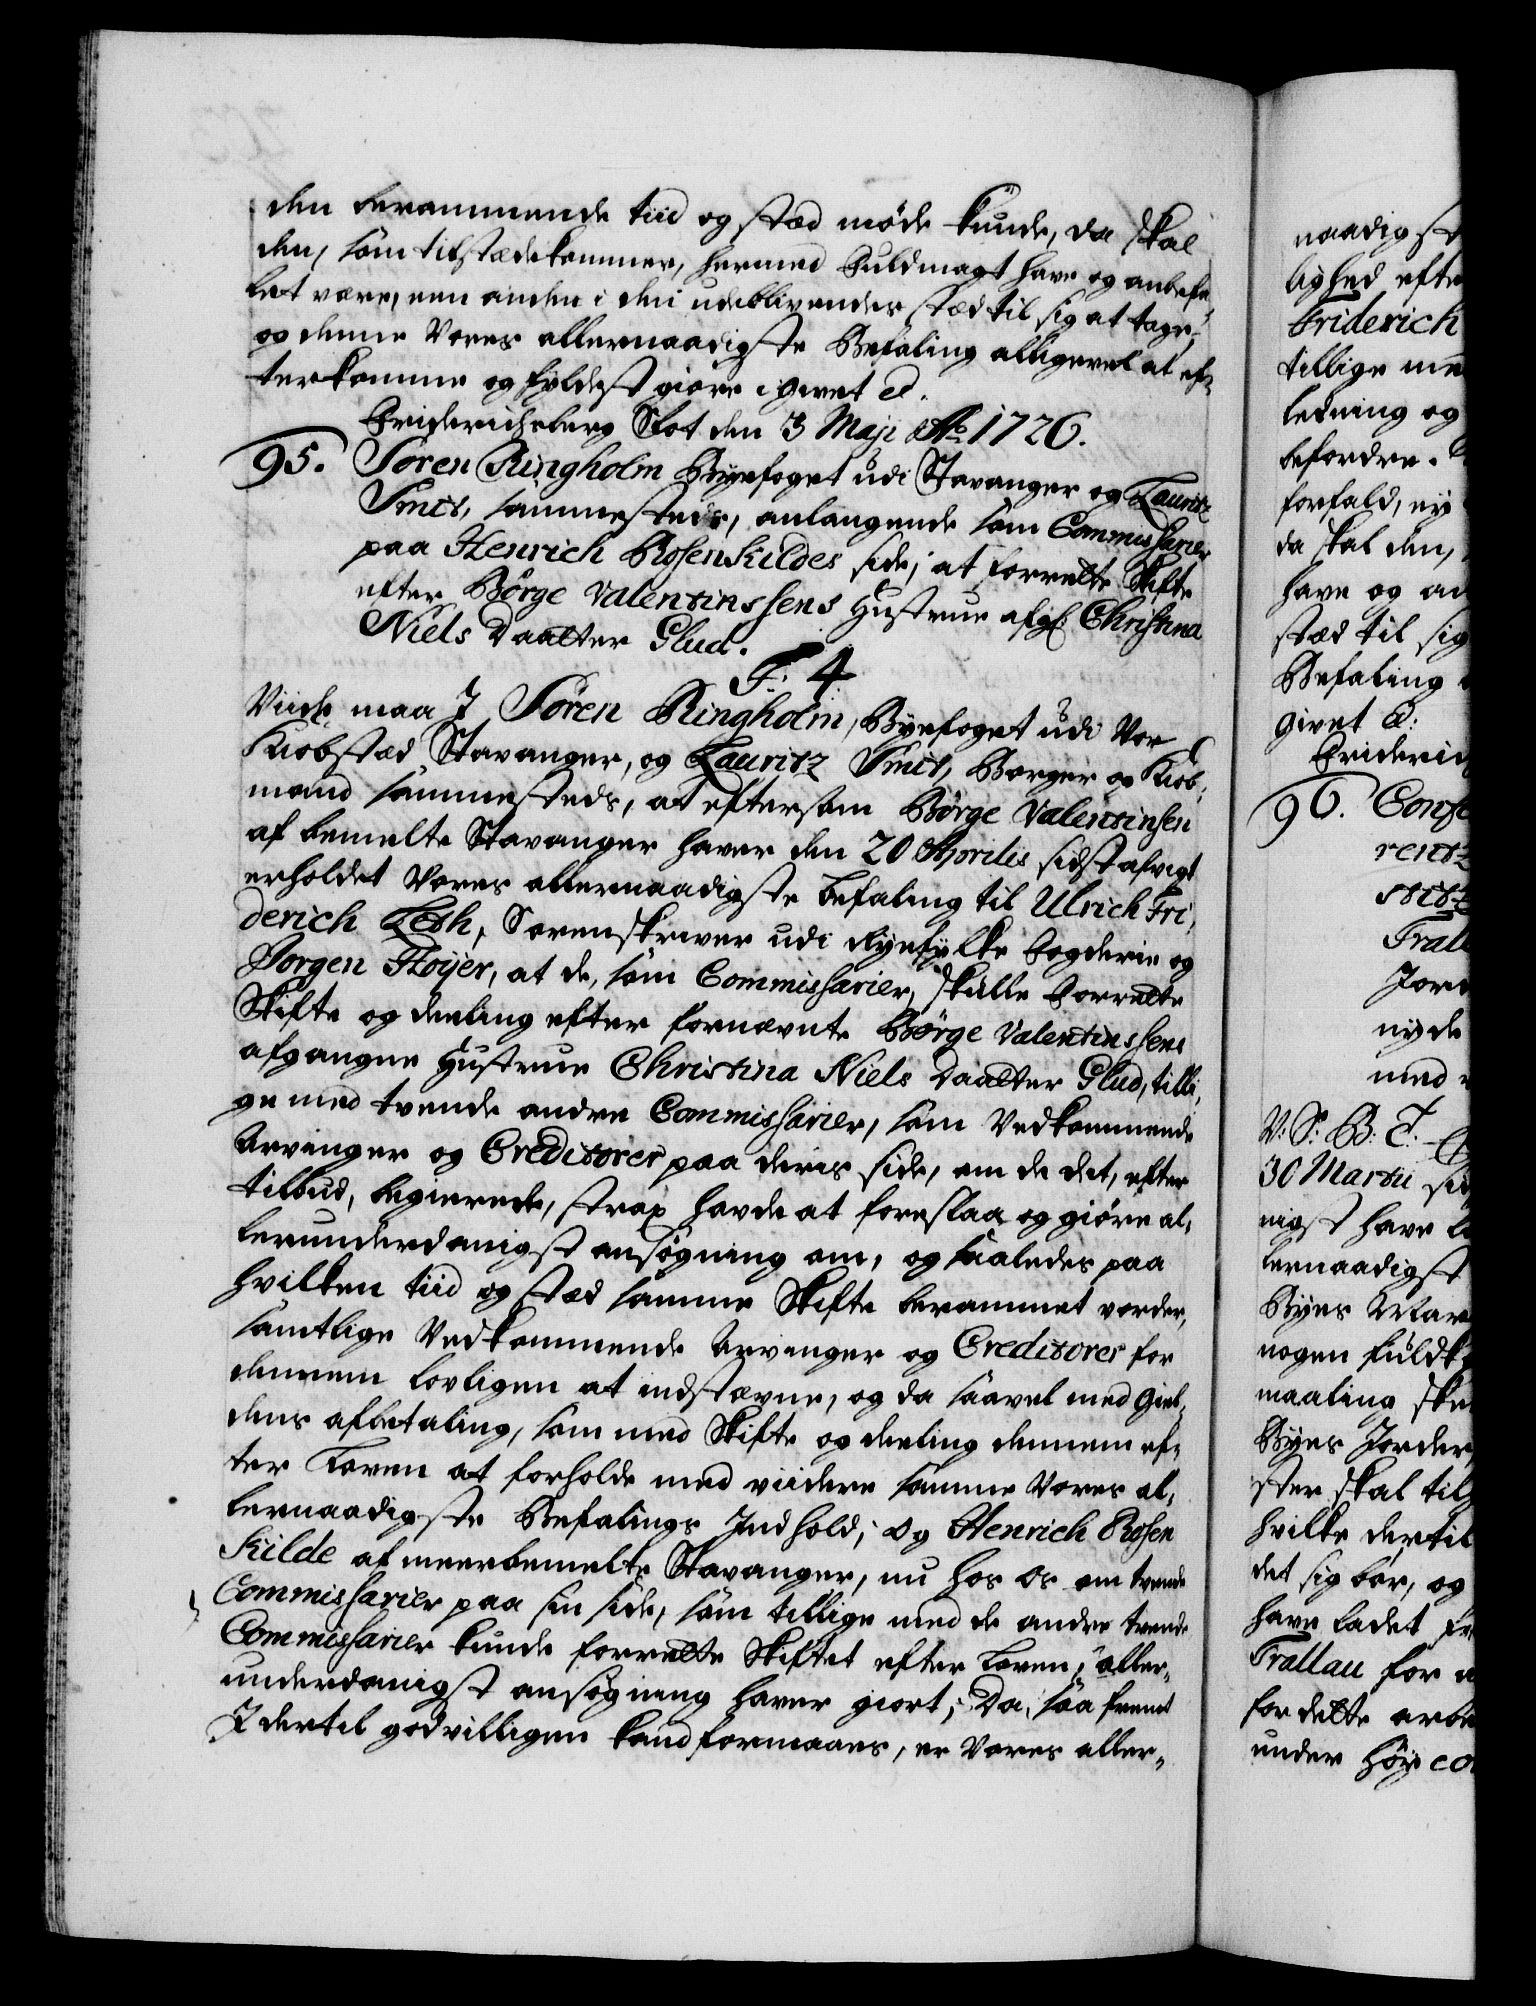 den berammende tiid og stæd møde kunde, da skal
den, som tilstædekommer, hermed Fuldmagt have og anbefa-
let være, een anden i den udeblivendes stæd til sig at tage,
og denne Vores allernaadigste Befaling alligevel at ef-
terkomme og fyldest giøre. givet ec.
Friderichsberg Slot den 3 Maji Ao 1726.
95. Søren Ringholm Byefoget udi Stavanger og Lauritz
Smit, sammesteds, anlangende som Commissarier
paa Henrich Rosenkildes side, at forrette Skifte
efter Børge Valentinssens Hustrue afg: Christina
Niels Daatter Glud.
F: 4
Viide maa I Søren Ringholm, Byefoget udi Vor
Kiøbstæd Stavanger, og Lauritz Smit, Borger og Kiøb-
mand sammesteds, at eftersom Børge Valentinsen
af bemelte Stavanger haver den 20 Aprilis sidst afvigt
erholdet Vores allernaadigste befaling til Ulrich Fri-
derich Lesh, Sorenskriver udi Ryefylke Fogderie og
Jørgen Høyer, at de, som Commissarier, skulle forrette
Skifte og deeling efter fornævnte Børge Valentinssens
afgangne Hustrue Christina Niels Daatter Glud, tilli-
ge med tvende andre Commissarier, som Vedkommende
Arvinger og Creditorer paa deris side, om de det, efter
tilbud, begierede, strax havde at foreslaa og giøre al-
lerunderdanigst ansøgning om, og saaledes paa
hvilken tiid og stæd samme Skifte berammet vorder,
samtlige Vedkommende Arvinger og Creditorer for
dennem lovligen at indstævne, og da saavel med Giel-
dens afbetaling, som med Skifte og deeling dennem ef-
ter Loven at forholde med viidere samme Vores al-
lernaadigste Befalings Indhold; og Henrich Rosen
Kilde af meerbemelte Stavanger, nu hos os om tvende
Commissarier paa sin side, som tillige med de andre tvende
Commissarier kunde forrette Skiftet efter Loven, aller-
underdanigst ansøgning haver giort; Da, saa fremt
I dertil godvilligen kand formaaes, er Vores aller-
naadigst
lighed efte
Friderich
tillige me
ledning og
befordre.
forfald, ey
da skal den,
have og an
stæd til sig
Befaling
givet ec:
Friderich
96. Conf
rentz
Trall
Jord
nyde
med
V: S: B: T:
30 Martii sid
nigst have
lernaadigst
Byes Mar
nogen fuldk
maaling ske
Byes Jorder,
ster skal til
hvilke dertil
det sig bør, og
have ladet
Trallau for
for dette arbe
under Høy co